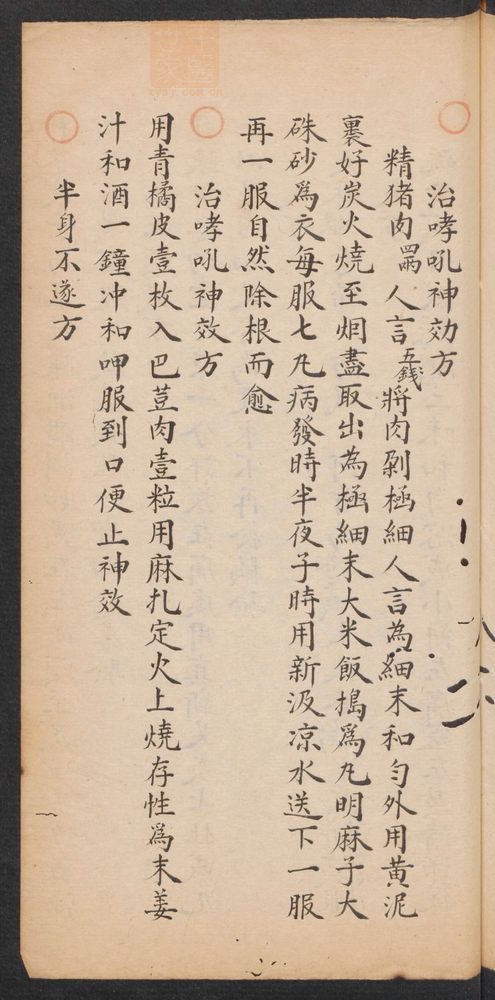 治哮吼神効方
精猪肉四兩人言五錢將肉剁極細人言為細末和勻外用黄泥
裹好炭火燒至烟盡取出為極細末大米飯搗為丸明麻子大
硃砂為衣每服七丸病發時半夜子時用新汲凉水送下一服
再一服自然除根而愈
治哮吼神效方
用青橘皮壹枚入巴荳肉壹粒用麻扎定火上燒存性為末姜
汁和酒一鐘冲和呷服到口便止神效
半身不遂方